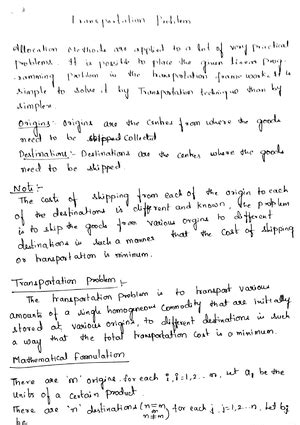 Transportation Problem
Allocation methods are applied to a lot of very practical
problems. It is possible to place the given linear prog
-ramming problem in the transportation frame work. It is
simple to solve it by Transportation technique than by
simplex.
Origins:- Origins are the centres from where the goods
need to be collected
Destinations:- Destinations are the centres where the goods
need to be shipped
Note:-
The costs of shipping from each of the origin to each
of the destinations is different and known, the problem
is to ship the goods from various origins to different
destinations in such a manner that the cost of shipping
or transportation is minimum.
Transportation Problem:-
The transportation problem is to transport various
amounts of a single homogeneous commodity that are initially
stored at various origins, to different destinations in such
a way that the total transportation cost is a minimum.
Mathematical Formulation
There are 'm' origins. for each i, i=1,2...n, let ai be the
Units of a certain Product.
There are 'n' destinations (n=m for each j, j=1,2...n, Let bj
n≠m)
be